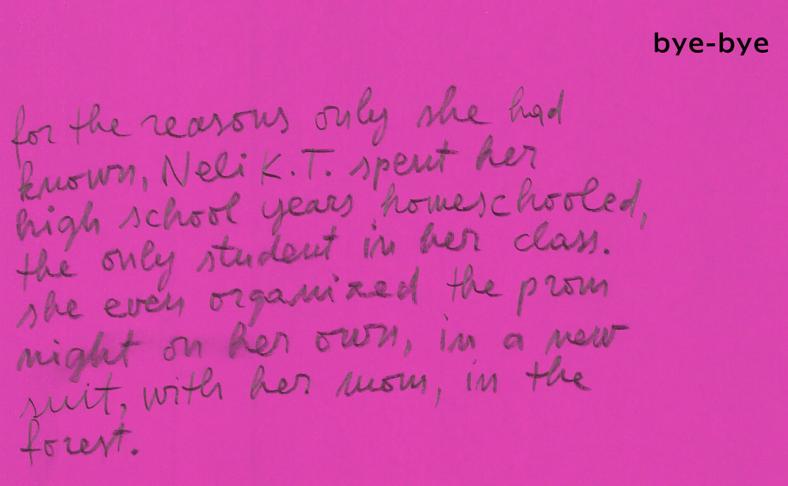 bye-bye
for the reasons only she had
known, Neli K.T. spent her
high school years homeschooled,
the only student in her class.
she even organized the prom
night on her own, in a new
suit, with her mom, in the
forest.